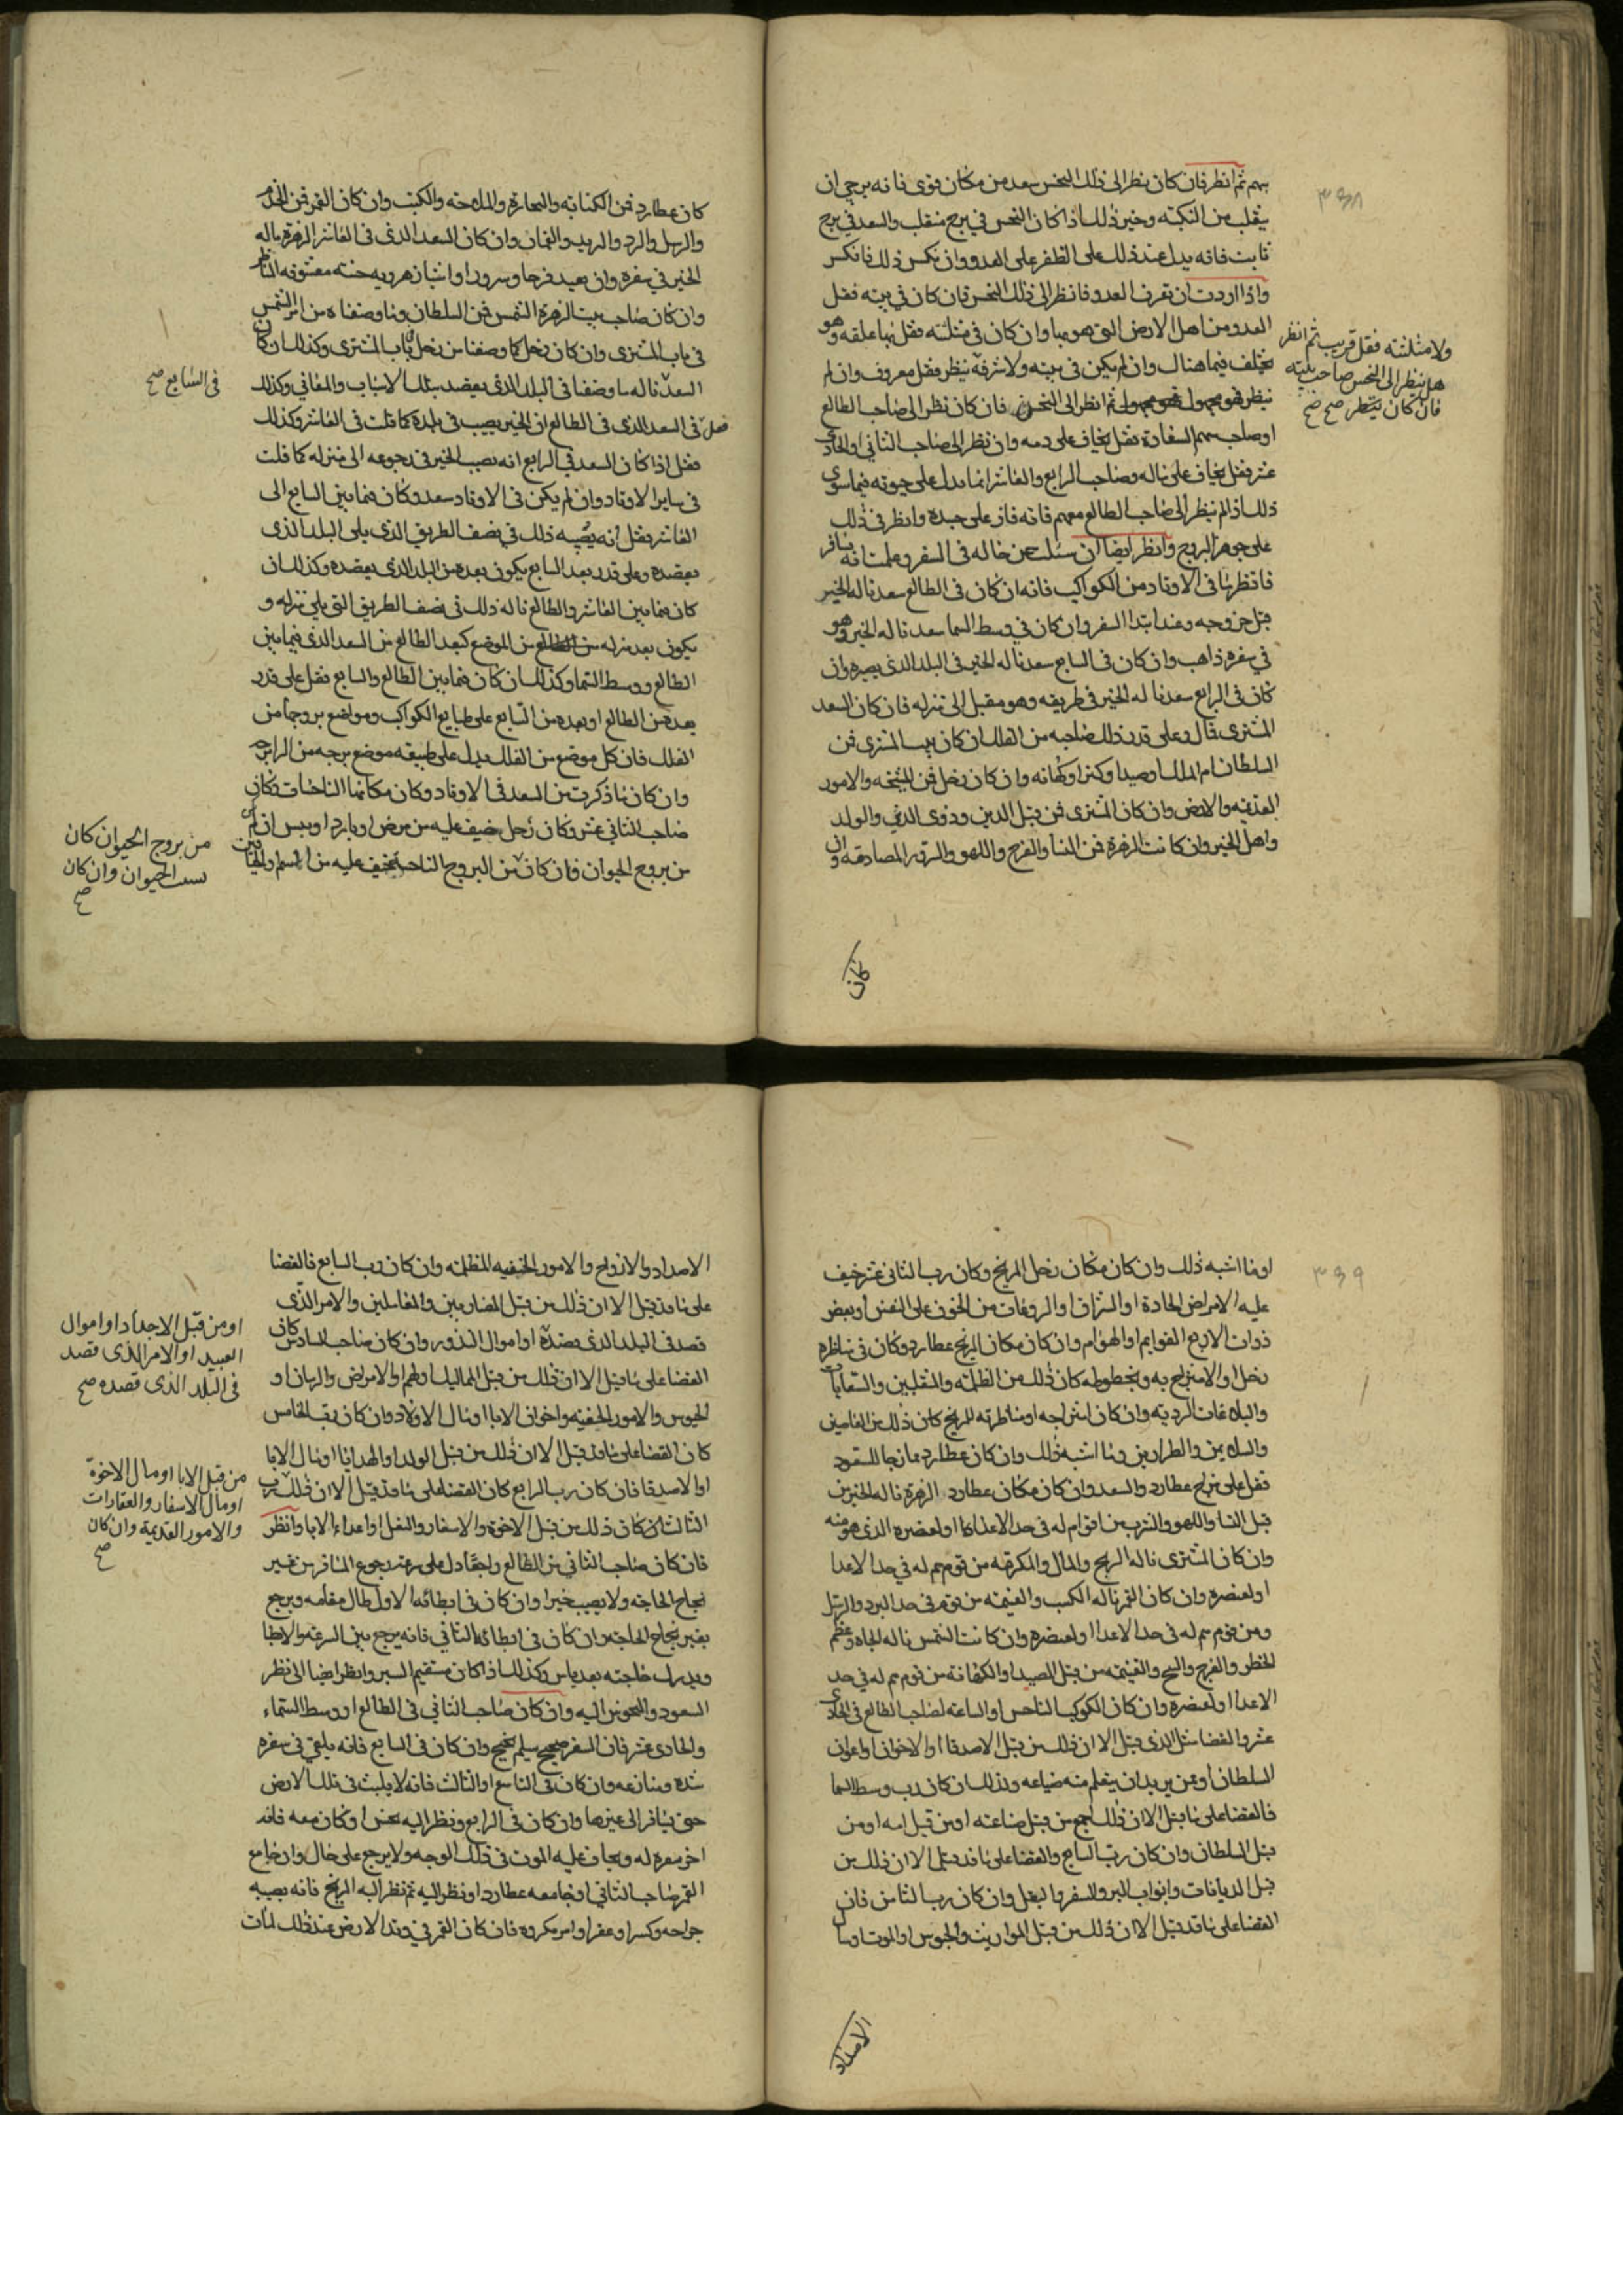 ٣٣٨
بهم ثم انظر فان كان نظر الى ذلك النحس سعد من مكان قوى فانه يرجى ان
يقلب من النكبته وخير ذلك اذا كان النحس في برج منقلب والسعد في برج
ثابت فانه يدل عند ذلك على الظفر على العدو وان نكس ذلك فانكس
واذا اردت ان تعرف العدو فانظر الى ذلك النحس فان كان في بيته فقل
العدو من اهل الارض التى هو بها وان كان في مثلثته فقل بها علقه وهو
يختلف فيما هناك وان لم يكن فى بيته ولا شرفه ينظر فقل معروف وان لم
ينظر فهو مجهول ثم انظر الى النحس فان كان نظر الى صاحب الطالع
او صاحب سهم السعادة فقل يخاف على دمه وان نظر الى صاحب الثاني او الحادى
عشر فقل يخاف على ماله وصاحب الرابع والعاشر انما يدل على حيوته فيما سوى
ذلك اذا لم ينظر الى صاحب الطالع معهم فانه فاز على جسده وانظر فى ذلك
على جوهر البروج وانظر ايضا ان سئلت عن حاله فى السفر وعلمت انه سافر
فانظر ما فى الاوتاد من الكواكب فانه ان كان فى الطالع سعد ناله الخير
قبل خروجه وعند ابتدا السفر وان كان في وسط السما سعد ناله الخير وهو
في سفره ذاهب وان كان فى السابع سعد ناله الخير فى البلد الذى يصيره وان
كان فى الرابع سعد ناله الخير فى طريقه وهو مقبل الى منزله فان كان السعد
المشترى قال وعلى قدر ذلك صاحبه من الفلك ان كان بيت المشترى فمن
السلطان ام الملك او صيد او كنز او كهانه وان كان زحل فمن الشيخه والامور
القديمه والارض وان كان المشترى فمن قبل الدين وذوى الدين والولد
واهل الخير وان كانت الزهرة فمن النسا والفرج واللهو والسرور المصادقه وان
ولا مثلثته فقل قريب ثم انظر
هل ينظر الى النحس صاحب بيته
فان كان ينظر صح صح
كان
كان عطارد فمن الكتابه والتجارة والملاحه والكتب وان كان القمر فمن الخدم
والرسل والبرد والبريد والثمار وان كان السعد الذى فى العاشر الزهرة ناله
الخير في سفره وان يصيد فرحا وسرورا او اتيان هدويه حسنه معشوقه الناظر
وان كان صاحب بيت الزهرة الشمس فمن السلطان وما وصفناه من امر الشمس
فى باب المشترى وان كان زحل كما وصفنا من زحل فى باب المشترى وكذلك ان كان
السعد ناله ما وصفنا فى البلد الذى يقصد بتلك الاسباب والمعاني وكذلك
فقل فى السعد الذى فى الطالع ان الخير يصيب فى بلده كما قلت فى العاشر وكذلك
فقل اذا كان السعد في الرابع انه يصيب الخير فى رجوعه الى منزله كما قلت
فى ساير الاوتاد وان لم يكن فى الاوتاد سعد وكان فيما بين السابع الى
العاشر فقل انه يصيبه ذلك في نصف الطريق الذى يلى البلد الذى
يقصده وعلى قدر بعد السابع يكون بعده من البلد الذى يقصده وكذلك ان
كان فيما بين العاشر والطالع ناله ذلك في نصف الطريق التى يلي منزله و
يكون بعد منزله من الموضع كبعد الطالع من السعد الذى فيما بين
الطالع ووسط السما وكذلك ان كان فيما بين الطالع والسابع فقل على قدر
بعده من الطالع او بعده من السابع على طبايع الكواكب ومواضع بروجها من
الفلك فان كل موضع من الفلك يدل على طبيعه موضع برجه من الرابع
وان كان ما ذكرت من السعد فى الاوتاد وكان مكانها الناحسات وكان
صاحب الثاني عشر وكان زحل خيف عليه من مرض او بارد او يبس ان لم
من بروج الحيوان فان كان من البروج الناحسه خيف عليه من السم والحيات
فى السابع صح
من بروج الحيوان كان
لسعت الحيوان وان كان
صح
٣٣٩
او ما اشبه ذلك وان كان مكان زحل المريخ وكان رب الثانى عشر خيف
عليه الامراض الحادة او السراق او الروعات من الخوف على النفس او بعض
ذوات الاربع القوايم او الهوام وان كان مكان المريخ عطارد وكان فى مناظره
زحل او الامتزاج به وبخطوطه كان ذلك من الظلمه والمتقلبين والسعايات
والبلاغات الرديه وان كان امتزاجه او مناظرته للمريخ كان ذلك من القاصين
والسلابين والطرارين وما اشبه ذلك وان كان عطارد ممازجا للسعود
فقل على مزاج عطارد والسعد وان كان مكان عطارد الزهرة ناله الخير من
قبل النسا واللهو والشرب من اقوام له في حد الاعدا كا او لعنصره الذى هو منه
وان كان المشترى ناله الربح والمال والمكرمه من قوم هم له في حد الاعدا
او لعنصره وان كان القمر ناله الكسب والغنيمه من قوم في حد البرد والرسل
ومن قوم هم له فى حد الاعدا او لعنصره وان كانت الشمس ناله الجاه وعظم
الخطر والفرج والربح والغنيمه من قبل الصيد او الكهانه من قوم هم له في حد
الاعدا او لعنصره وان كان الكوكب الناحس او الساعه لصاحب الطالع فى الحادى
عشر فالقضا مثل الذى قيل الا ان ذلك من قبل الاصدقا او الاخوان او اعوان
السلطان او من يريد ان يتعلم منه صناعه وذلك ان كان رب وسط السما
فالقضا على ما قيل الا ان ذلك اجمع من قبل صناعته او من قبل امه او من
قبل السلطان وان كان رب التاسع والقضا على ما قد قيل الا ان ذلك من
قبل الديانات وابواب البر والسفر بالبغل وان كان رب الثامن فان
القضا على ما قد قيل الا ان ذلك من قبل المواريث والحبوس او الموت او مال
الاضداد
الاضداد والازواج والامور الخفيه المظلمه وان كان رب السابع فالقضا
على ما قد قيل الا ان ذلك من قبل المضاربين والمقاتلين والامر الذى
قصد فى البلد الذى قصده او اموال البذور وان كان صاحب السادس كان
القضا على ما قيل الا ان ذلك من قبل المماليك او لهم او الامراض والرهان او
الحبوس والامور الخفيه واخوان الابا او مال الاولاد وان كان رب الخامس
كان القضا على ما قد قيل الا ان ذلك من قبل الولد او الهدايا او مال الابا
او الاصدقا فان كان رب الرابع كان القضا على ما قد قيل الا ان ذلك رب
الثالث كان ذلك من قبل الاخوة والاسفار والنقل او اعداء الابا وانظر
فان كان صاحب الثاني من الطالع راجعا دل على سرعه رجوع المسافر من غير
نجاح الحاجه ولا يصيب خيرا وان كان فى ابطائه الاول طال مقامه ويرجع
بغير نجاح الحاجه وان كان فى ابطائه الثانى فانه يرجع بين السرعه والابطا
ويدرك حاجته بعد ياس وكذلك اذا كان مستقيم السير وانظر ايضا الى نظر
السعود والنحوس اليه وان كان صاحب الثاني فى الطالع او وسط السماء
والحادى عشر فان السفر صحيح سليم نجيح وان كان فى السابع فانه يلقى فى سفره
شده ومنازعه وان كان فى التاسع او الثالث فانه لا يلبث فى تلك الارض
حتى يسافر الى غيرها وان كان فى الرابع ونظر اليه نحس او كان معه فانه
اخر سفره له ويخاف عليه الموت فى ذلك الوجه ولا يرجع على حال وان جامع
القمر صاحب الثاني او جامعه عطارد او نظر اليه ثم نظر اليه المريخ فانه يصيبه
جراحه وكسر او عقر او امر مكروه فان كان القمر فى وتد الارض عند ذلك لمات
او من قبل الاجداد او اموال
العبيد او الامر الذى قصد
فى البلد الذى قصده صح
من قبل الابا او مال الاخوة
او مال الاسفار والعقارات
والامور القديمة وان كان
صح